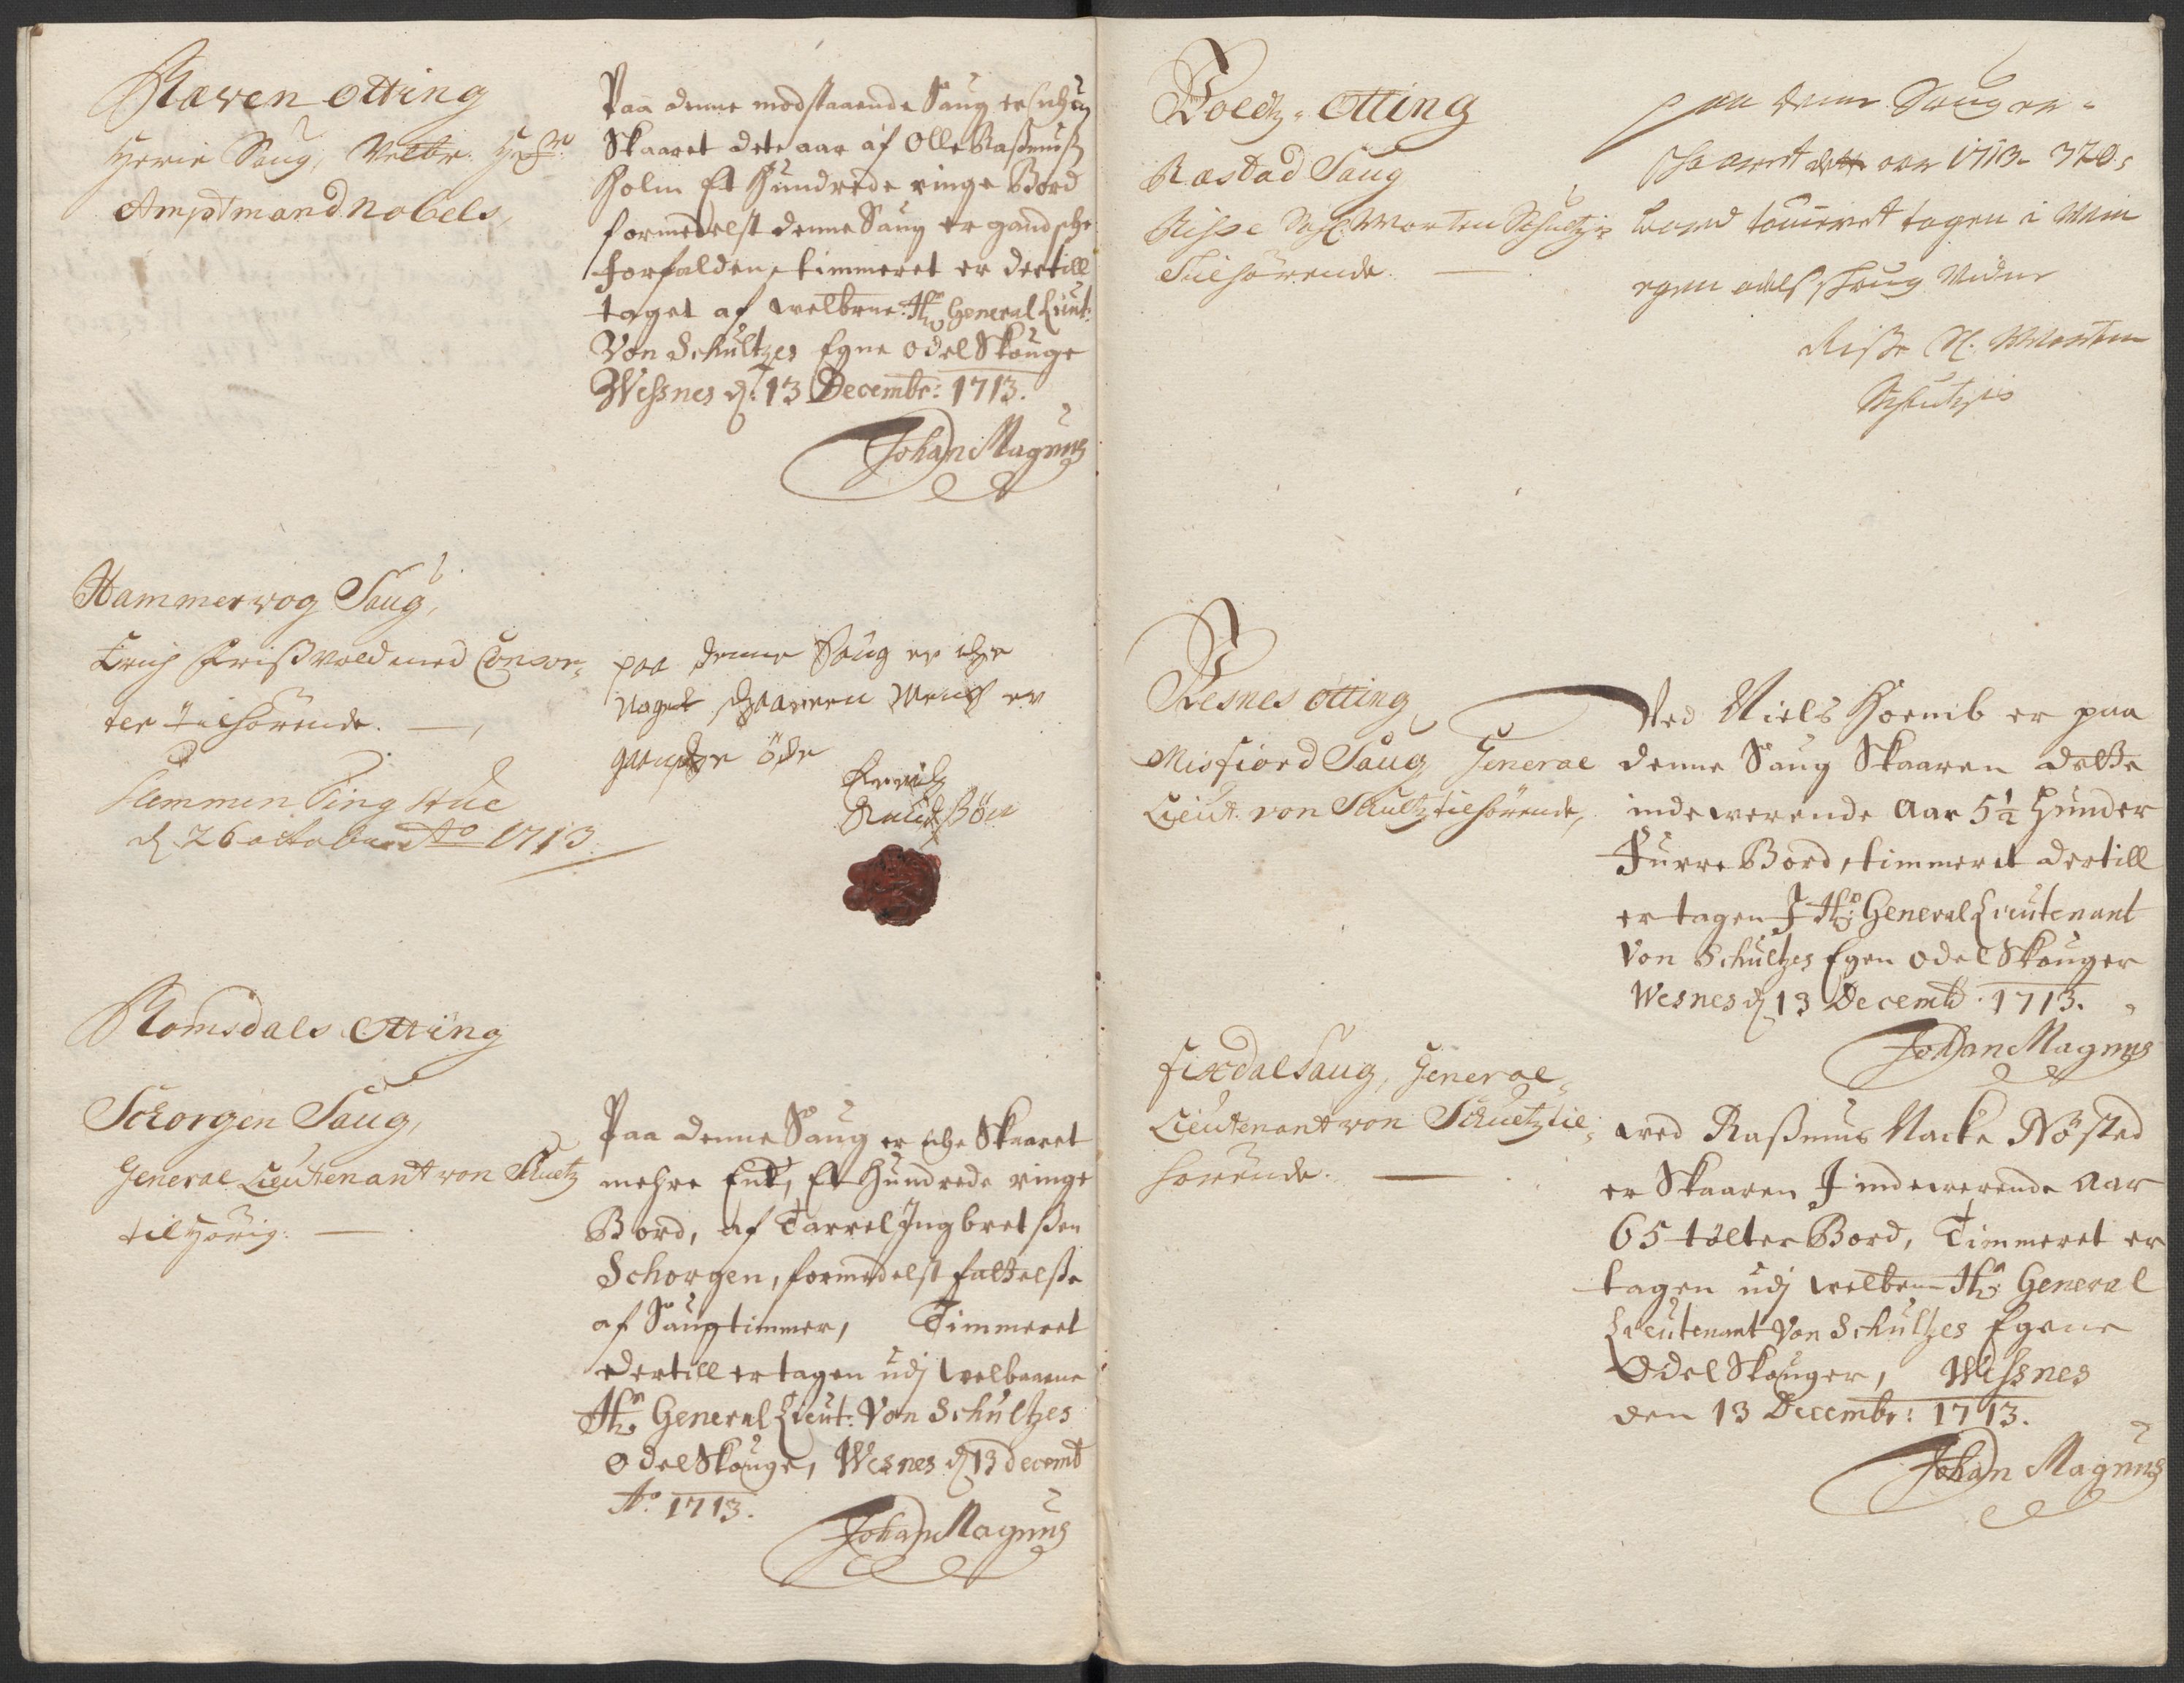 Ræven Otting
Herie Saug, Velbr: Hr
Amptmand Nobels,
Paa denne modstaaende Saug er
Skaaret dete aar af Olle Rasmus
Holm Et Hundrede ringe Bord
formedelst denne Saug er gandsche
forfalden, timmeret er dertill
taget af welbrne: Hr General Lieut:
Von Schultzes Egne Odel Skouge
Wessnes d: 13 Decembr: 1713.
Johan Magnus
Hammervog Saug,
Erich Frissvold med Consor-
ter tilhörende.
Paa denne Saug er iche
noget schaaren Mens er
gandsche öde
Hemmen Tingstue
d. 26 octobr Ao 1713
Romsdals Otting
Schorgen Saug,
General Lieutenant von Schultz
tilhörig.
Paa denne Saug er iche Skaaret
mehre End, Et Hundrede ringe
Bord, af Tarrel Ingbretsen
Schorgen, formedelst
af Saugtimmer, Timmeret
dertill er tagen udj welbaarne
Hr General Lieut: Von Schultzes
Odel Skouge, Wesnes d 13 decemb
Ao. 1713.
Johan Magnus
Boldtz-Otting
Ræstad Saug
Sal: Morten Schultzis
Tilhörende.
paa denne Saug er
schaaret dette aar 1713-
bord tömret tagen i Min
egen odels schoug
Morten
Schultzis
Vesnes Otting
Misfiord Saug General
Lieut. von Schultz tilhörende,
Ved Niels Hoemb er paa
denne Saug Skaaren dette
indewerende Aar 5½ Hunder
Furre Bord, timmeret dertill
er tagen I Hr: General Lieutenant
Von Schultzes Egen Odel Skouger
Wesnes d 13 Decemb. 1713.
Johan Magnus
Fixdal Saug, General
Lieutenant von Schultz til-
hörende.
wed Rasmus Nacke Nösted
er Skaaren I indewerende Aar
65 tölter Bord, Timmeret er
tagen udj welbrne Hr: General
Lieutenant Von Schultzes Egene
Odel Skouger, Wessnes
den 13 Decembr: 1713.
Johan Magnus